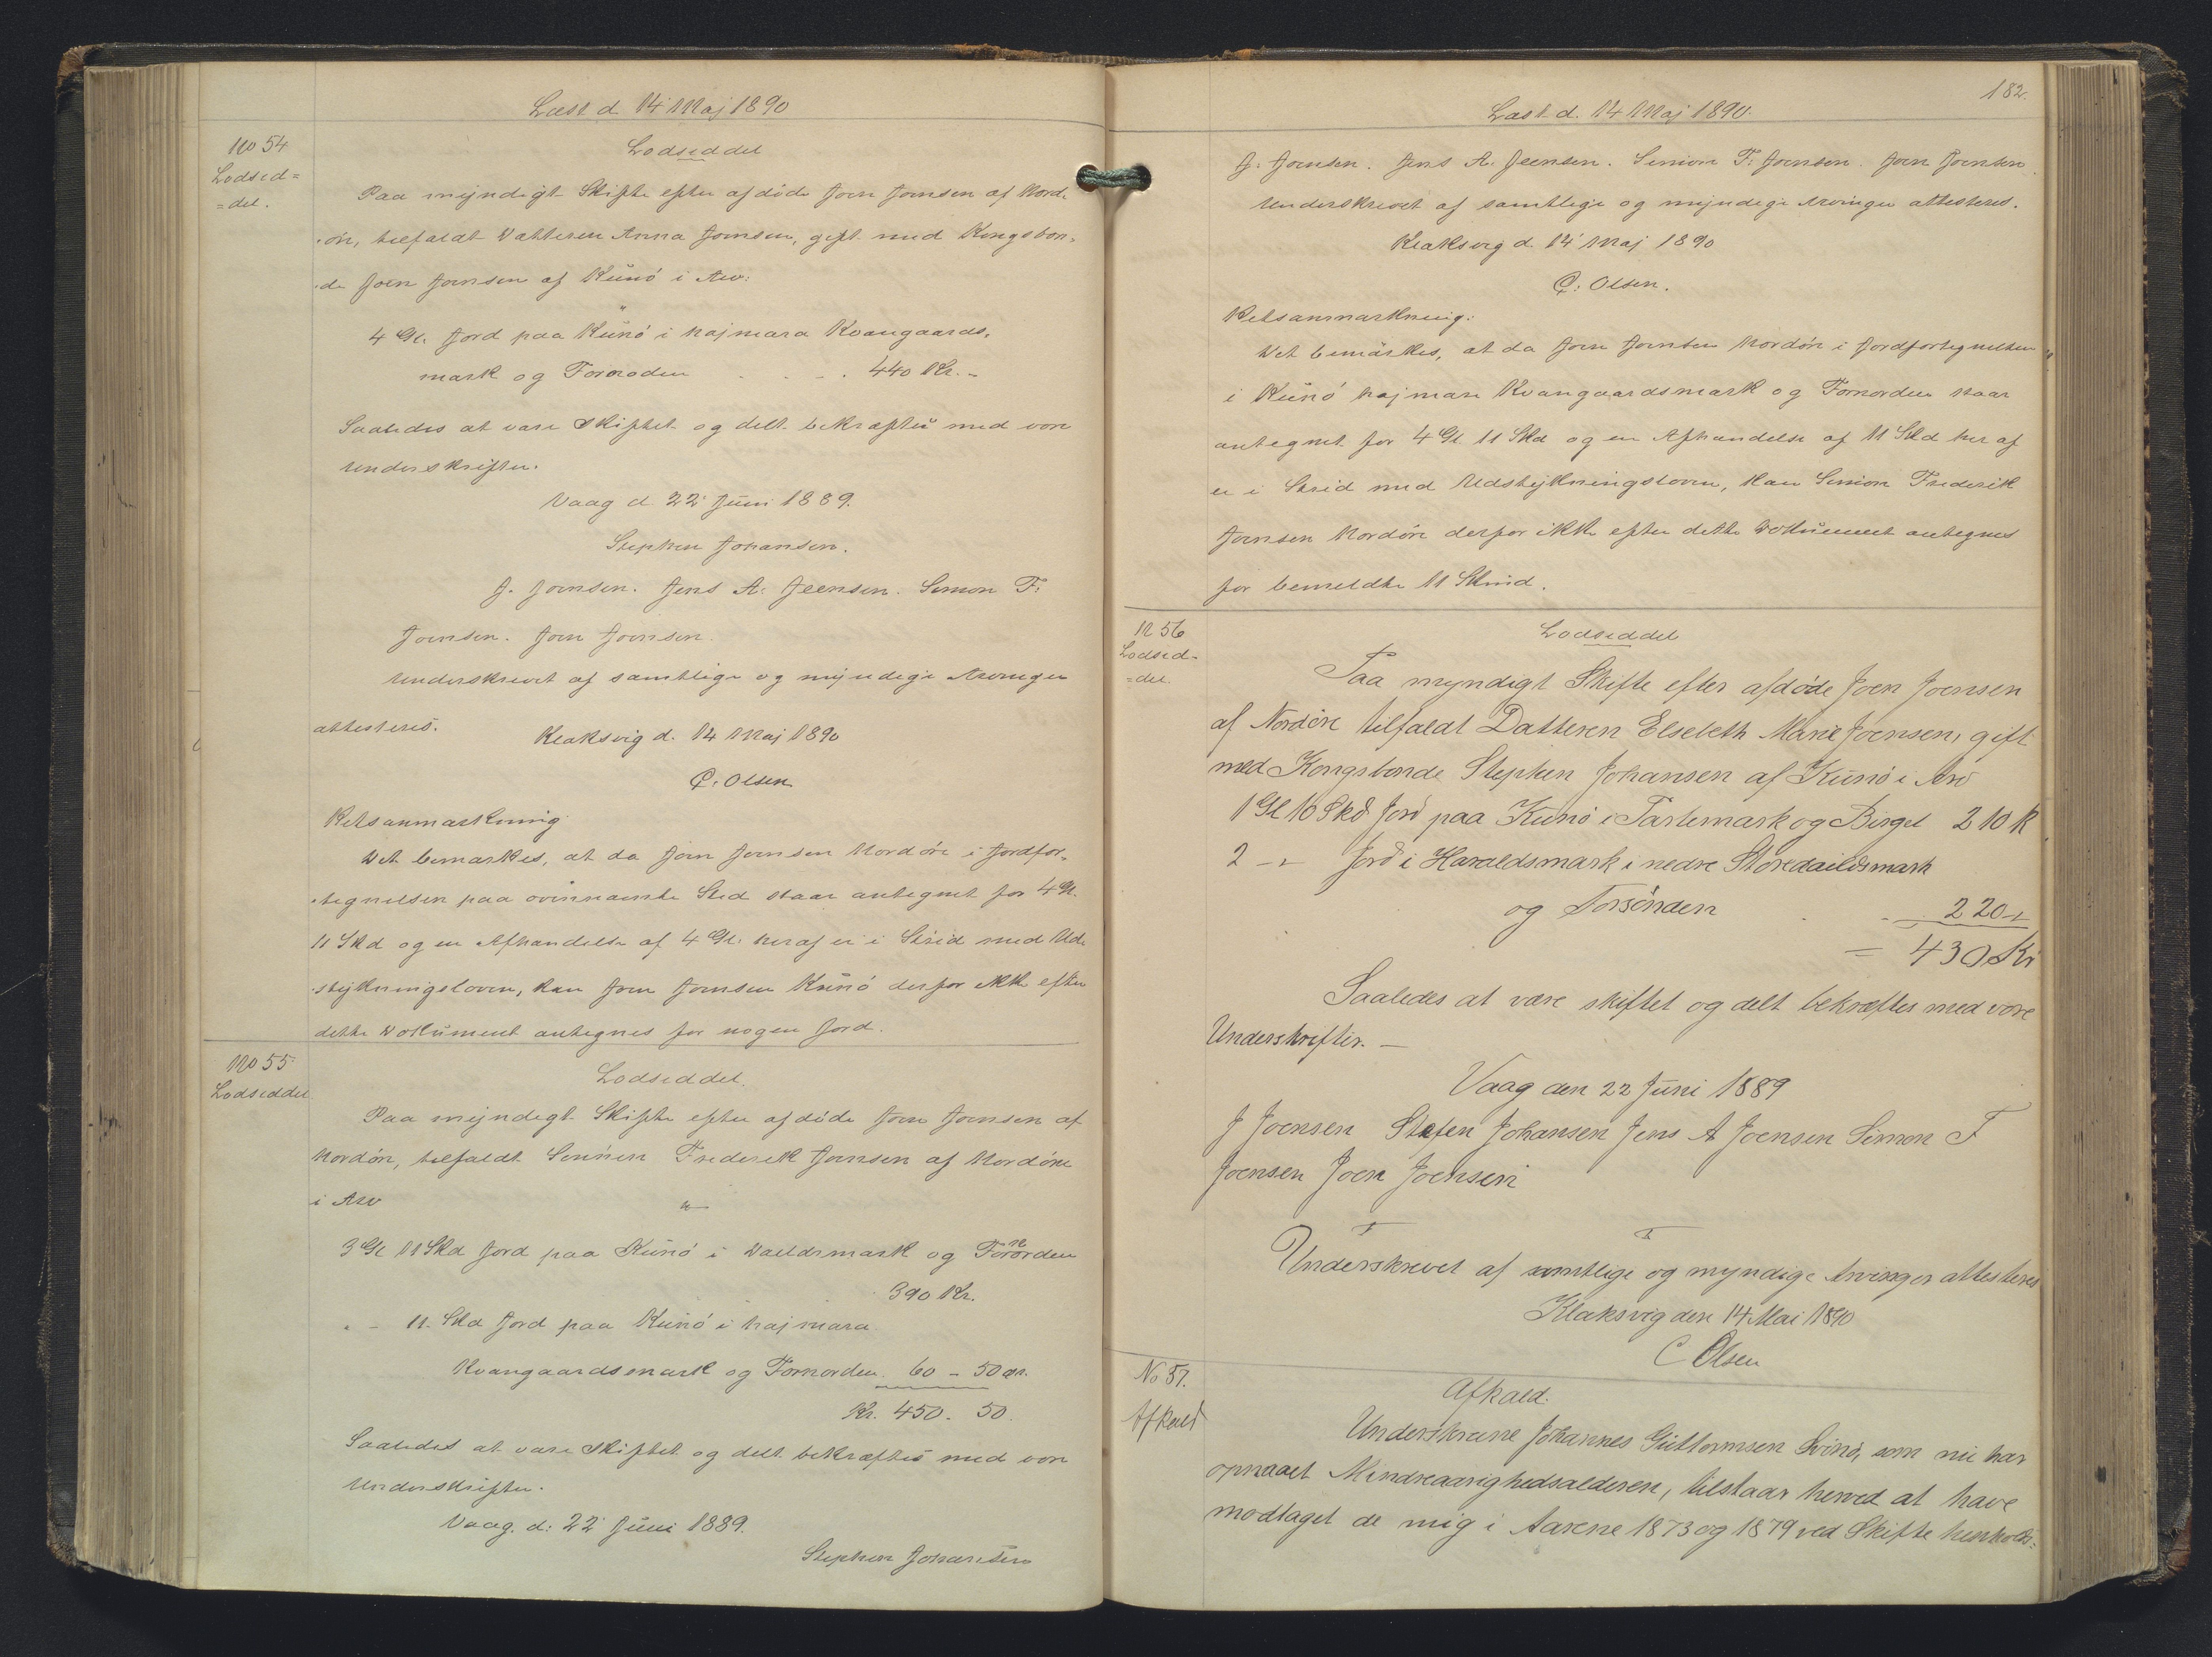 Læst d. 14 Maj 1890
No 54
Lodsed=
=del.
Lodseddel
Paa myndigt Skifte efter afdøde Joen Joensen af Nord-
øre, tilfaldt Datteren Anna Joensen, gift med Kongsbon-
de Joen Joensen af Kunø i Arv:
4 Gl. Jord paa Kunø i Hajmara Kvangaards-
mark og Fornorden . . . 440 Kr. -
Saaledes at være skiftet og delt bekræftes med vore
Underskrifter.
Vaag d 22' Juni 1889.
Stephen Johansen.
J. Joensen. Jens A. Joensen. Simon F.
Joensen. Joen Joensen.
Underskrevet af samtlige og myndige Arvinger
attesteres.
Klaksvig d. 14 Maj 1890
C. Olsen
Retsanmærkning
Det bemærkes, at da Joen Joensen Nordøre i Jordfor-
tegnelsen paa ovennævnte Sted staar antegnet for 4 Gl.
11 Skd og en Afhandelse af 4 Gl. heraf er i Strid med Ud-
stykningsloven, kan Joen Joensen Kunø derfor ikke efter
dette Dokument antegnes for nogen Jord.
No 55
Lodseddel
Lodseddel.
Paa myndigt Skifte efter afdøde Joen Joensen af
Nordøre, tilfaldt Sønnen Frederik Joensen af Nordøre
i Arv
3 Gl 11 Skd Jord paa Kunø i Daeldsmark og Fornorden
390 Kr.
" - 11 Skd Jord paa Kunø i Hajmara
Kvangaardsmark og Fornorden 60 - 50 ør.
Kr. 450. 50.
Saaledes at være skiftet og delt bekræftes med vore
Underskrifter.
Vaag. d: 22' Juni 1889.
Stephen Johansen
182.
Læst d. 14 Maj 1890.
J. Joensen. Jens A. Joensen. Simon F. Joensen. Joen Joensen.
Underskrevet af samtlige og myndige Arvinger attesteres.
Klaksvig d. 14' Maj 1890
C. Olsen.
Retsanmærkning:
Det bemærkes, at da Joen Joensen Nordøre i Jordfortegnelsen
i Kunø Hajmara Kvangaardsmark og Fornorden staar
antegnet for 4 Gl 11 Skd og en Afhandelse af 11 Skd her af
er i Strid med Udstykningsloven, kan Simon Frederik
Joensen Nordøre derfor ikke efter dette Dokument antegnes
for bemeldte 11 Skind.
N 56
Lodsed-
=del.
Lodseddel
Paa myndigt Skifte efter afdøde Joen Joensen
af Nordøre tilfaldt Datteren Elsebeth Marie Joensen, gift
med Kongsbonde Stephen Johansen af Kunø i Arv
1 Gl 10 Skd Jord paa Kunø i Partemark og Birgel 210 K
2 - - Jord i Haraldsmark i nedre Storedaeldsmark
og Forsønden . . 220 -
= 430 Kr
Saaledes at være skiftet og delt bekræftes med vore
Underskrifter. -
Vaag den 22 Juni 1889
J Joensen Stefen Johansen Jens A Joensen Simon F
Joensen Joen Joensen
Underskrevet af samtlige og myndige Arvinger attesteres
Klaksvig den 14 Mai 1890
C Olsen
No 57.
Afkald
Afkald.
Underskrevne Johannes Guttormsen Svinø, som nu har
opnaaet Mindreaarighedsalderen, tilstaar herved at have
modtaget de mig i Aarene 1873 og 1879 ved Skifte henholds: